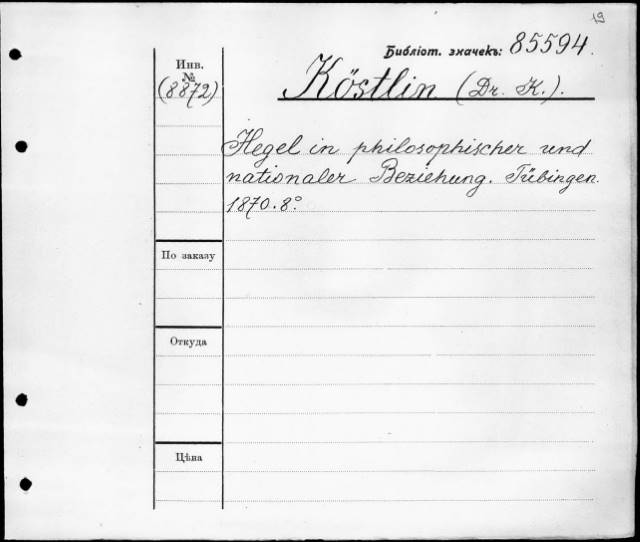 19
Библіот. значекъ: 85594.
Инв.
№
(8872)
Köstlin (Dr. K.).
Hegel in philosophischer und
nationaler Beziehung. Tübingen.
1870. 8°
По заказу
Откуда
Цѣна